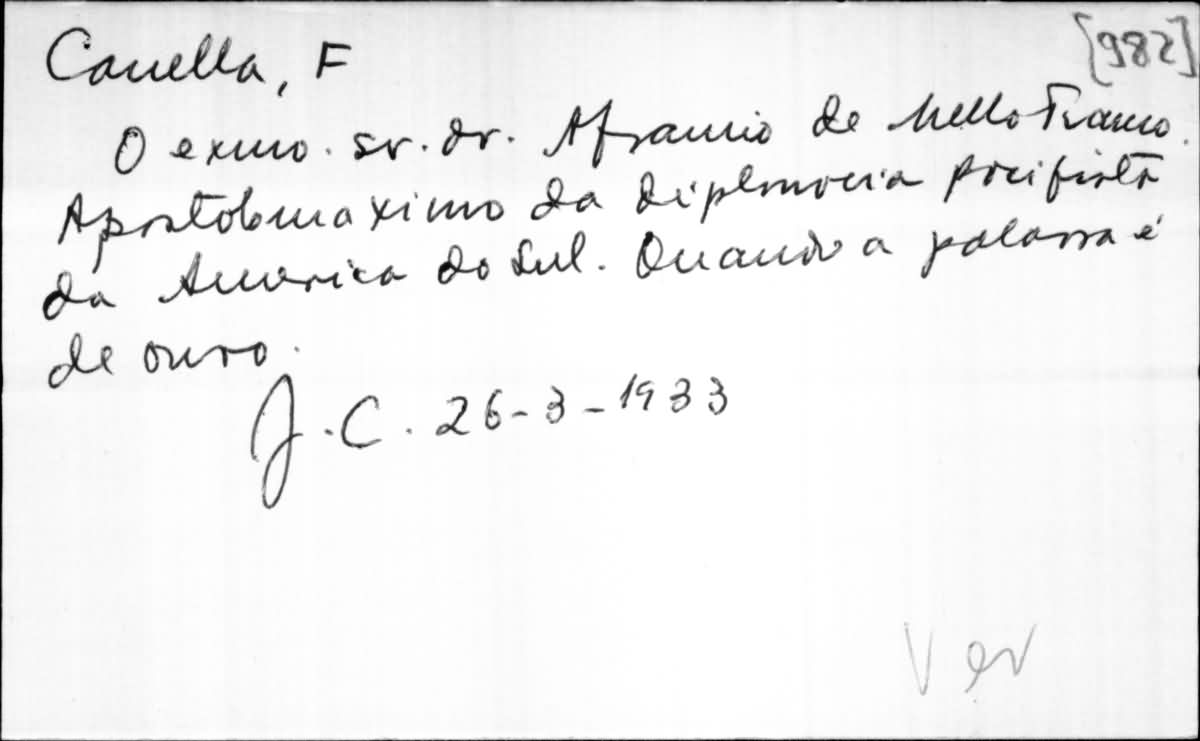 [982]
Canella, F
O exmo. sr. dr. Afranio de Mello Franco.
Apostolo maximo da diplomacia pacifista
da America do Sul. Quando a palavra é
de ouro.
J. C. 26-3-1933
Ver